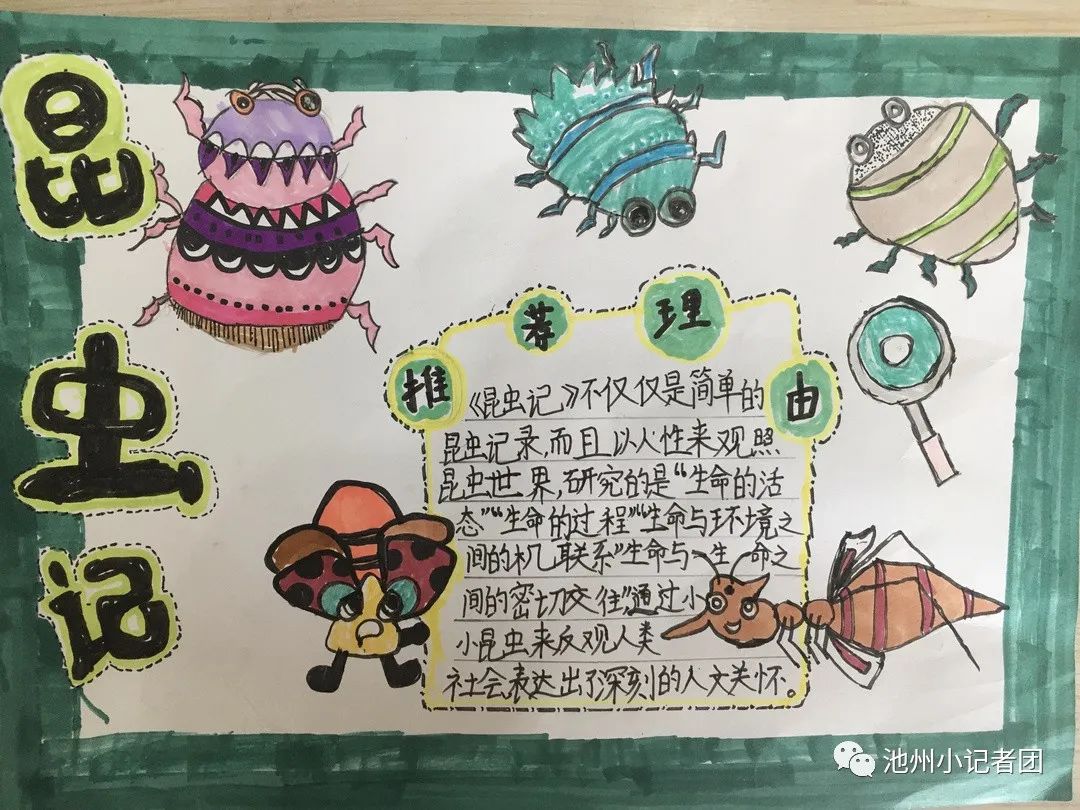 昆虫记
推荐理由
《昆虫记》不仅仅是简单的
昆虫记录,而且以人性来观照
昆虫世界,研究的是“生命的活
态”“生命的过程”“生命与环境之
间的机联系”生命与生命之
间的密切交往”通过小
小昆虫来反观人类
社会表达出了深刻的人文关怀。
池州小记者团